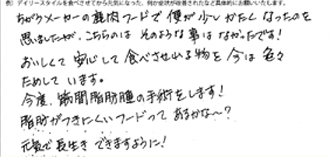 例）デイリースタイルを食べさせてから元気になった、何か症状が改善されたなど具体的にお願いいたします。
ちがうメーカーの鹿肉フードで便が少しかたくなったのを
思いましたが、こちらのは そのような事は なかったです！
おいしくて 安心して 食べさせれる物を 今は 色々
ためして います。
今度、筋間脂肪腫の手術をします！
脂肪がつきにくいフードって あるかな〜？
元気で長生き できますように！